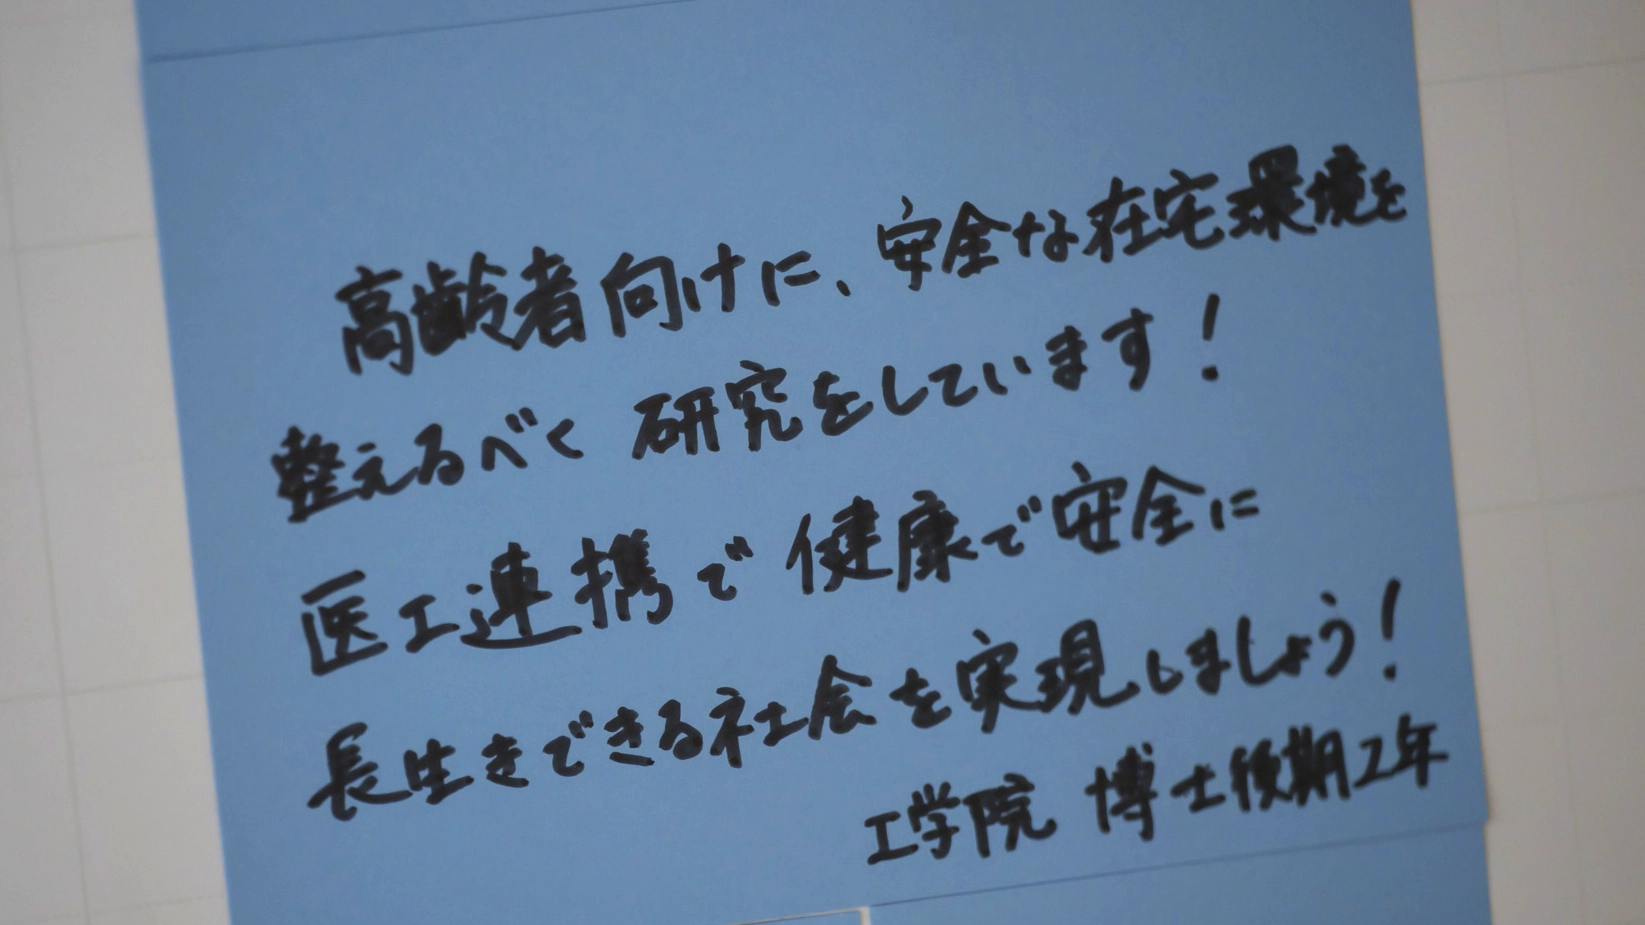 高齢者向けに、安全な在宅環境を
整えるべく研究をしています!
医工連携で健康で安全に
長生きできる社会を実現しましょう!
工学院 博士後期2年